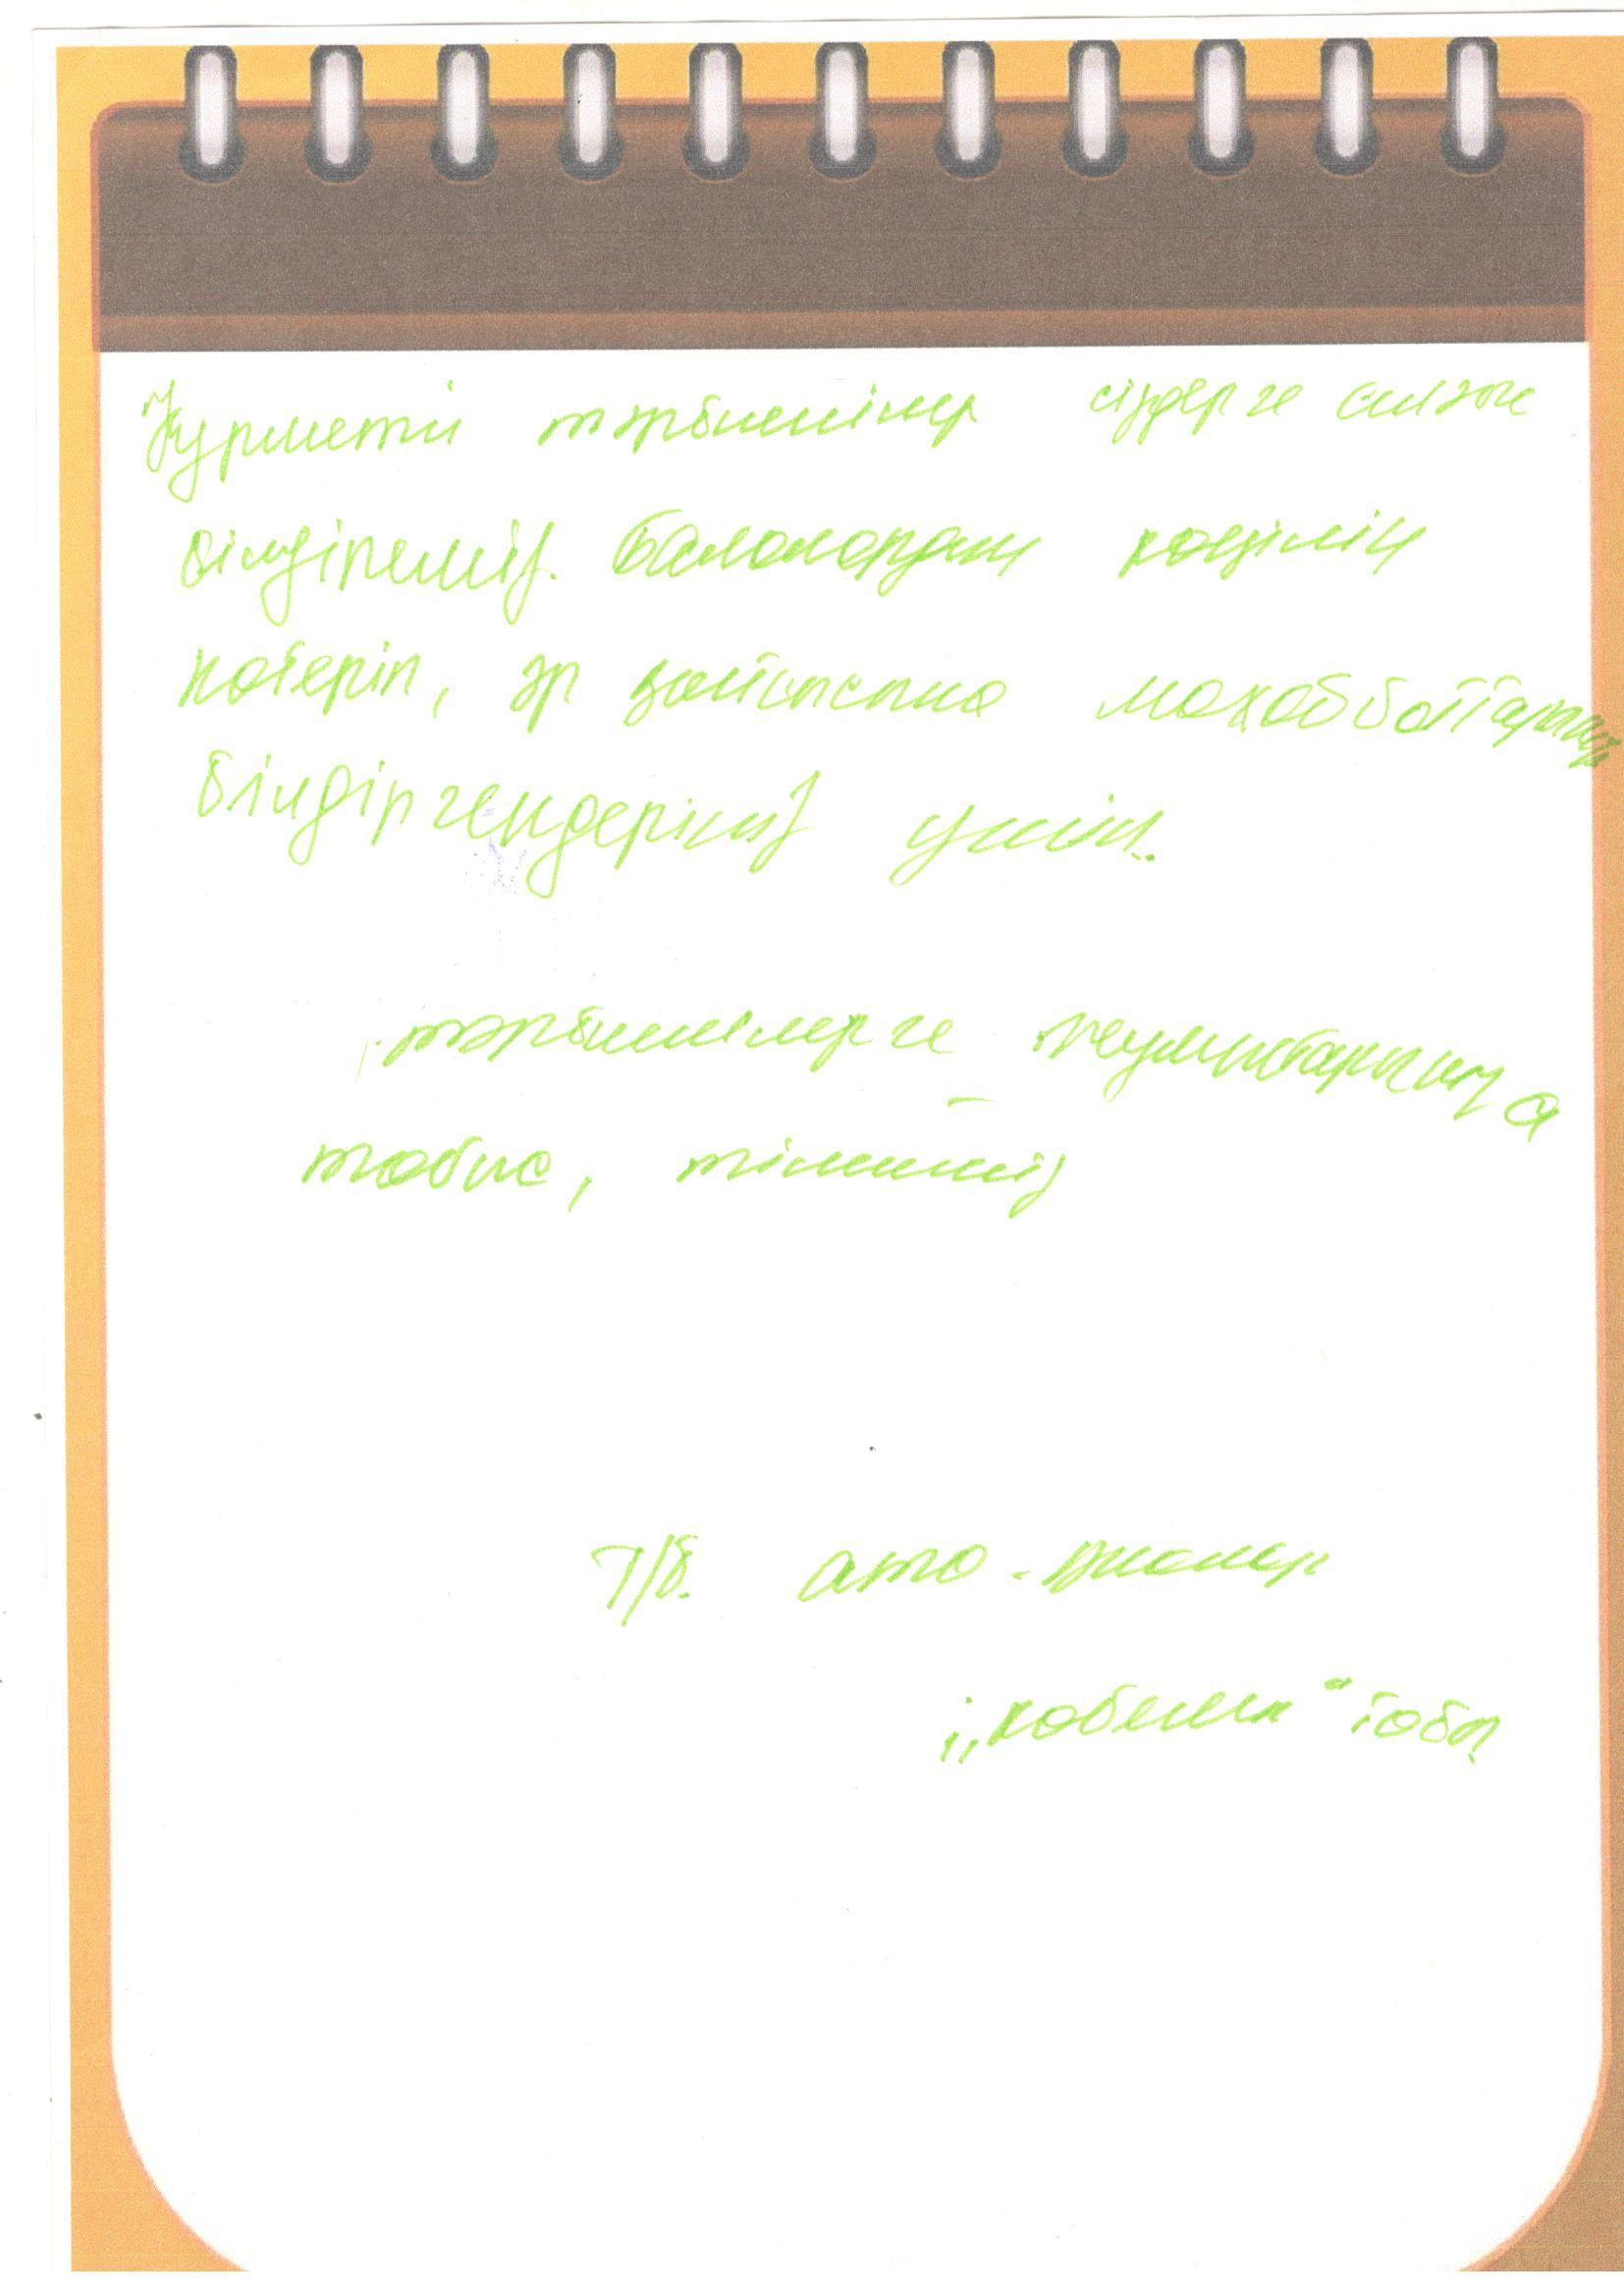 Құрметті тәрбиешілер сіздерге алғыс
білдіреміз. Балалардың көңілін
көтеріп, әр қайсысына махаббаттарыңыз
білдіргендеріңіз үшін.
тәрбиешілерге жұмыстарыңызға
табыс, тілейміз
Т/б. ата-аналар
"көбелек" тобы